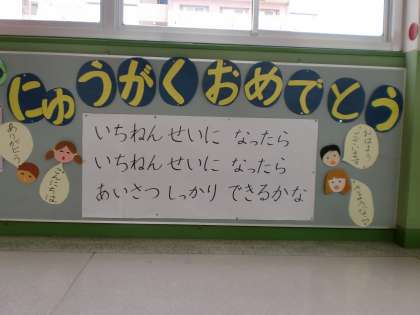 にゅうがくおめでとう
いちねんせいに なったら
いちねんせいに なったら
あいさつ しっかり できるかな
ありがとう
こんにちは
おはよう
ございます
さようなら